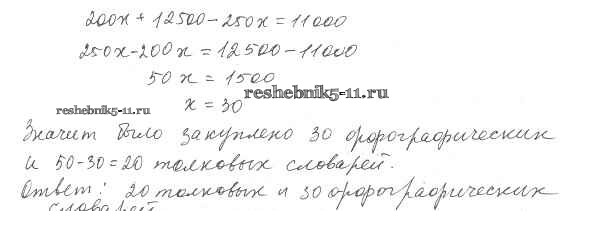 200x + 12500 - 250x = 11000
250x - 200x = 12500 - 11000
50x = 1500
reshebnik5-11.ru
x = 30
reshebnik5-11.ru
Значит было закуплено 30 орфографических
и 50-30=20 толковых словарей.
Ответ: 20 толковых и 30 орфографических
словарей